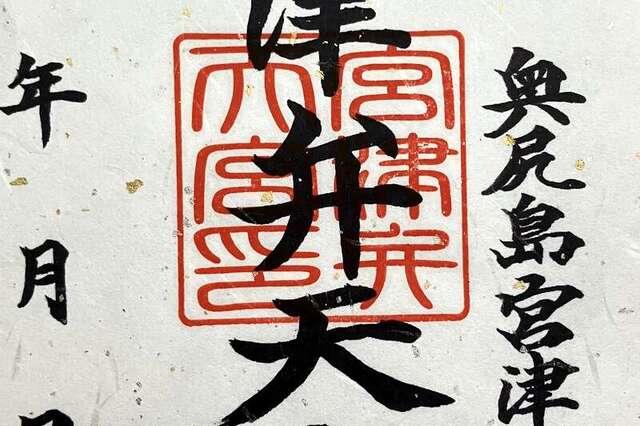 奥尻島宮津
津弁天
宮津弁
天宮印
年月日